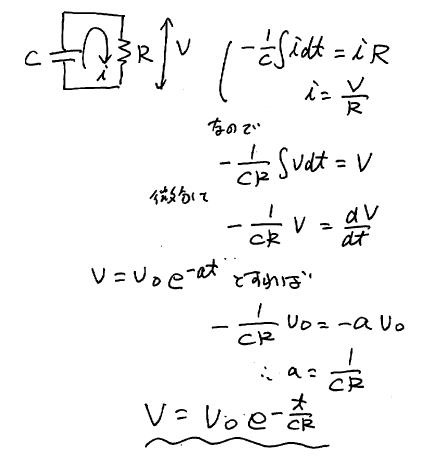 C i R V
-1/C ∫idt = iR
i = V/R
なので
-1/CR ∫vdt = V
微分して
-1/CR V = dV/dt
V = V₀e^{-at} とすれば
-1/CR V₀ = -aV₀
∴ a = 1/CR
V = V₀e^{-t/CR}